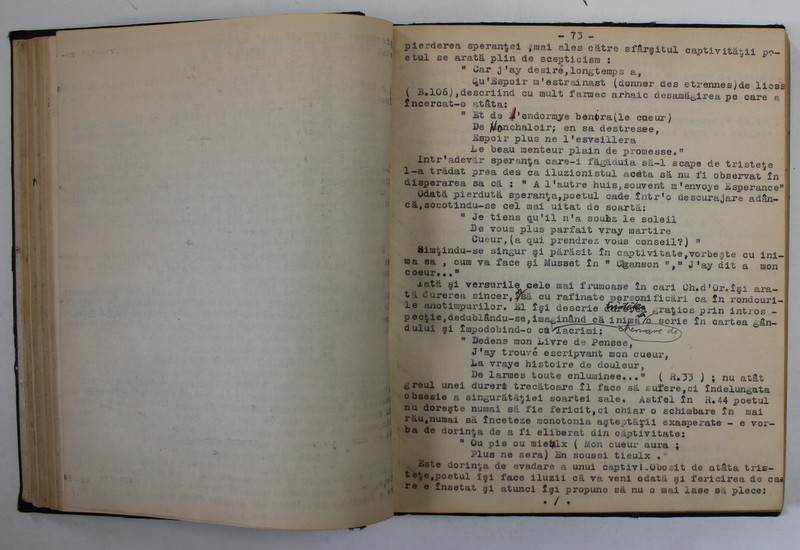 - 73 -
pierderea speranţei ,mai ales către sfârşitul captivităţii po-
etul se arată plin de scepticism :
" Car j'ay desiré,longtemps a,
Qu'Espoir m'estrainast (donner des etrennes)de liess
( B.106),descriind cu mult farmec arhaic desamăgirea pe care a
încercat-o atâta:
" Et de m'endormye benira(le cueur)
De Nonchaloir; en sa destresse,
Espoir plus ne l'esveillera
Le beau menteur plain de promesse."
Intr'adevăr speranţa care-i făgăduia să-l scape de tristeţe
l-a trădat prea des ca iluzionistul acesta să nu fi observat în
disperarea sa că : " A l'autre huis,souvent m'envoye Esperance"
Odată pierdută speranţa,poetul cade într'o descurajare adân-
că,socotindu-se cel mai uitat de soartă:
" Je tiens qu'il n'a soubz le soleil
De vous plus parfait vray martire
Cueur,(a qui prendrez vous conseil?) "
Simţindu-se singur şi părăsit în captivitate,vorbeşte cu ini-
ma sa , cum va face şi Musset în " Chanson "," J'ay dit a mon
coeur..."
Iată şi versurile cele mai frumoase în cari Ch.d'Or.îşi ara-
tă durerea sincer, să cu rafinate personificări ca în rondouri-
le anotimpurilor. El îşi descrie graţios prin intros -
pecţie,dedublându-se,imaginând că inima o scrie în cartea gân-
dului şi împodobind-o cu lacrimi: chenare de
" Dedens mon Livre de Pensee,
J'ay trouvé escripvant mon cueur,
La vraye histoire de douleur,
De larmes toute enluminee..." ( R.33 ) ; nu atât
greul unei dureri trecătoare îl face să sufere,ci îndelungata
obsesie a singurătăţiei soartei sale. Astfel în R.44 poetul
nu doreşte numai să fie fericit,ci chiar o schimbare în mai
rău,numai să înceteze monotonia aşteptării exasperate - e vor-
ba de dorinţa de a fi eliberat din captivitate:
" Ou pis ou mieulx ( Mon cueur aura ;
Plus ne sera) En soussi tieulx ."
Este dorinţa de evadare a unui captiv!.Obosit de atâta tris-
teţe,poetul îşi face iluzii că va veni odată şi fericirea de ca
re e însetat şi atunci îşi propune să nu o mai lase să plece:
. / .